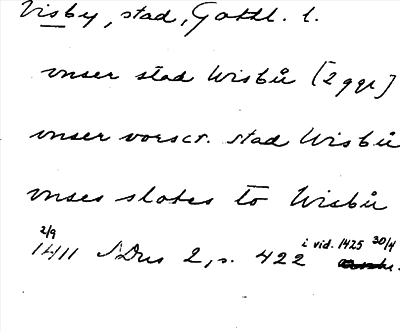 Visby, stad, Gothl. l.
vnser stad Wisbů [2 ggr]
vnser vorscr. stad Wisbů
vnses slotes to Wisbů
2/9 1411 SDns 2, s. 422 i vid. 1425 30/4